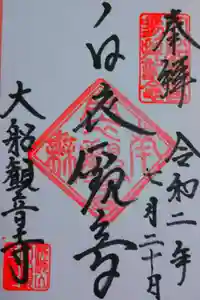 奉拜
令和二年
七月二十日
白衣観音
大船觀音寺